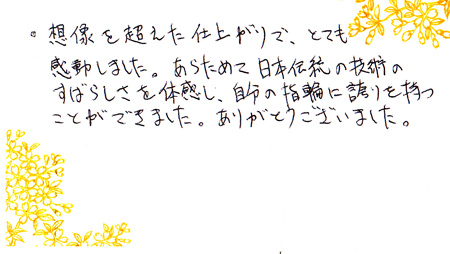 。想像を超えた仕上がりで、とても
感動しました。あらためて日本伝統の技術の
すばらしさを体感し、自分の指輪に誇りを持つ
ことができました。ありがとうございました。